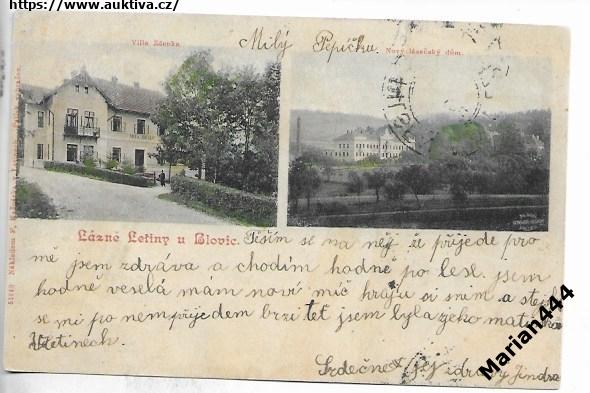 https://www.auktiva.cz/
Villa Zdenka.
Milý Pepíčku
Nový lázeňský dům.
Lázně Letiny u Blovic.
Těším se na něj že přijede pro
mě jsem zdráva a chodím hodně po lese. jsem
hodně veselá mám noví míč hraju si sním a
se mi po nem přijedem brzi teť jsem byla
Vletinech.
Srdečně jej zdraví Jindra
51640 Nákladem F.
Marian444